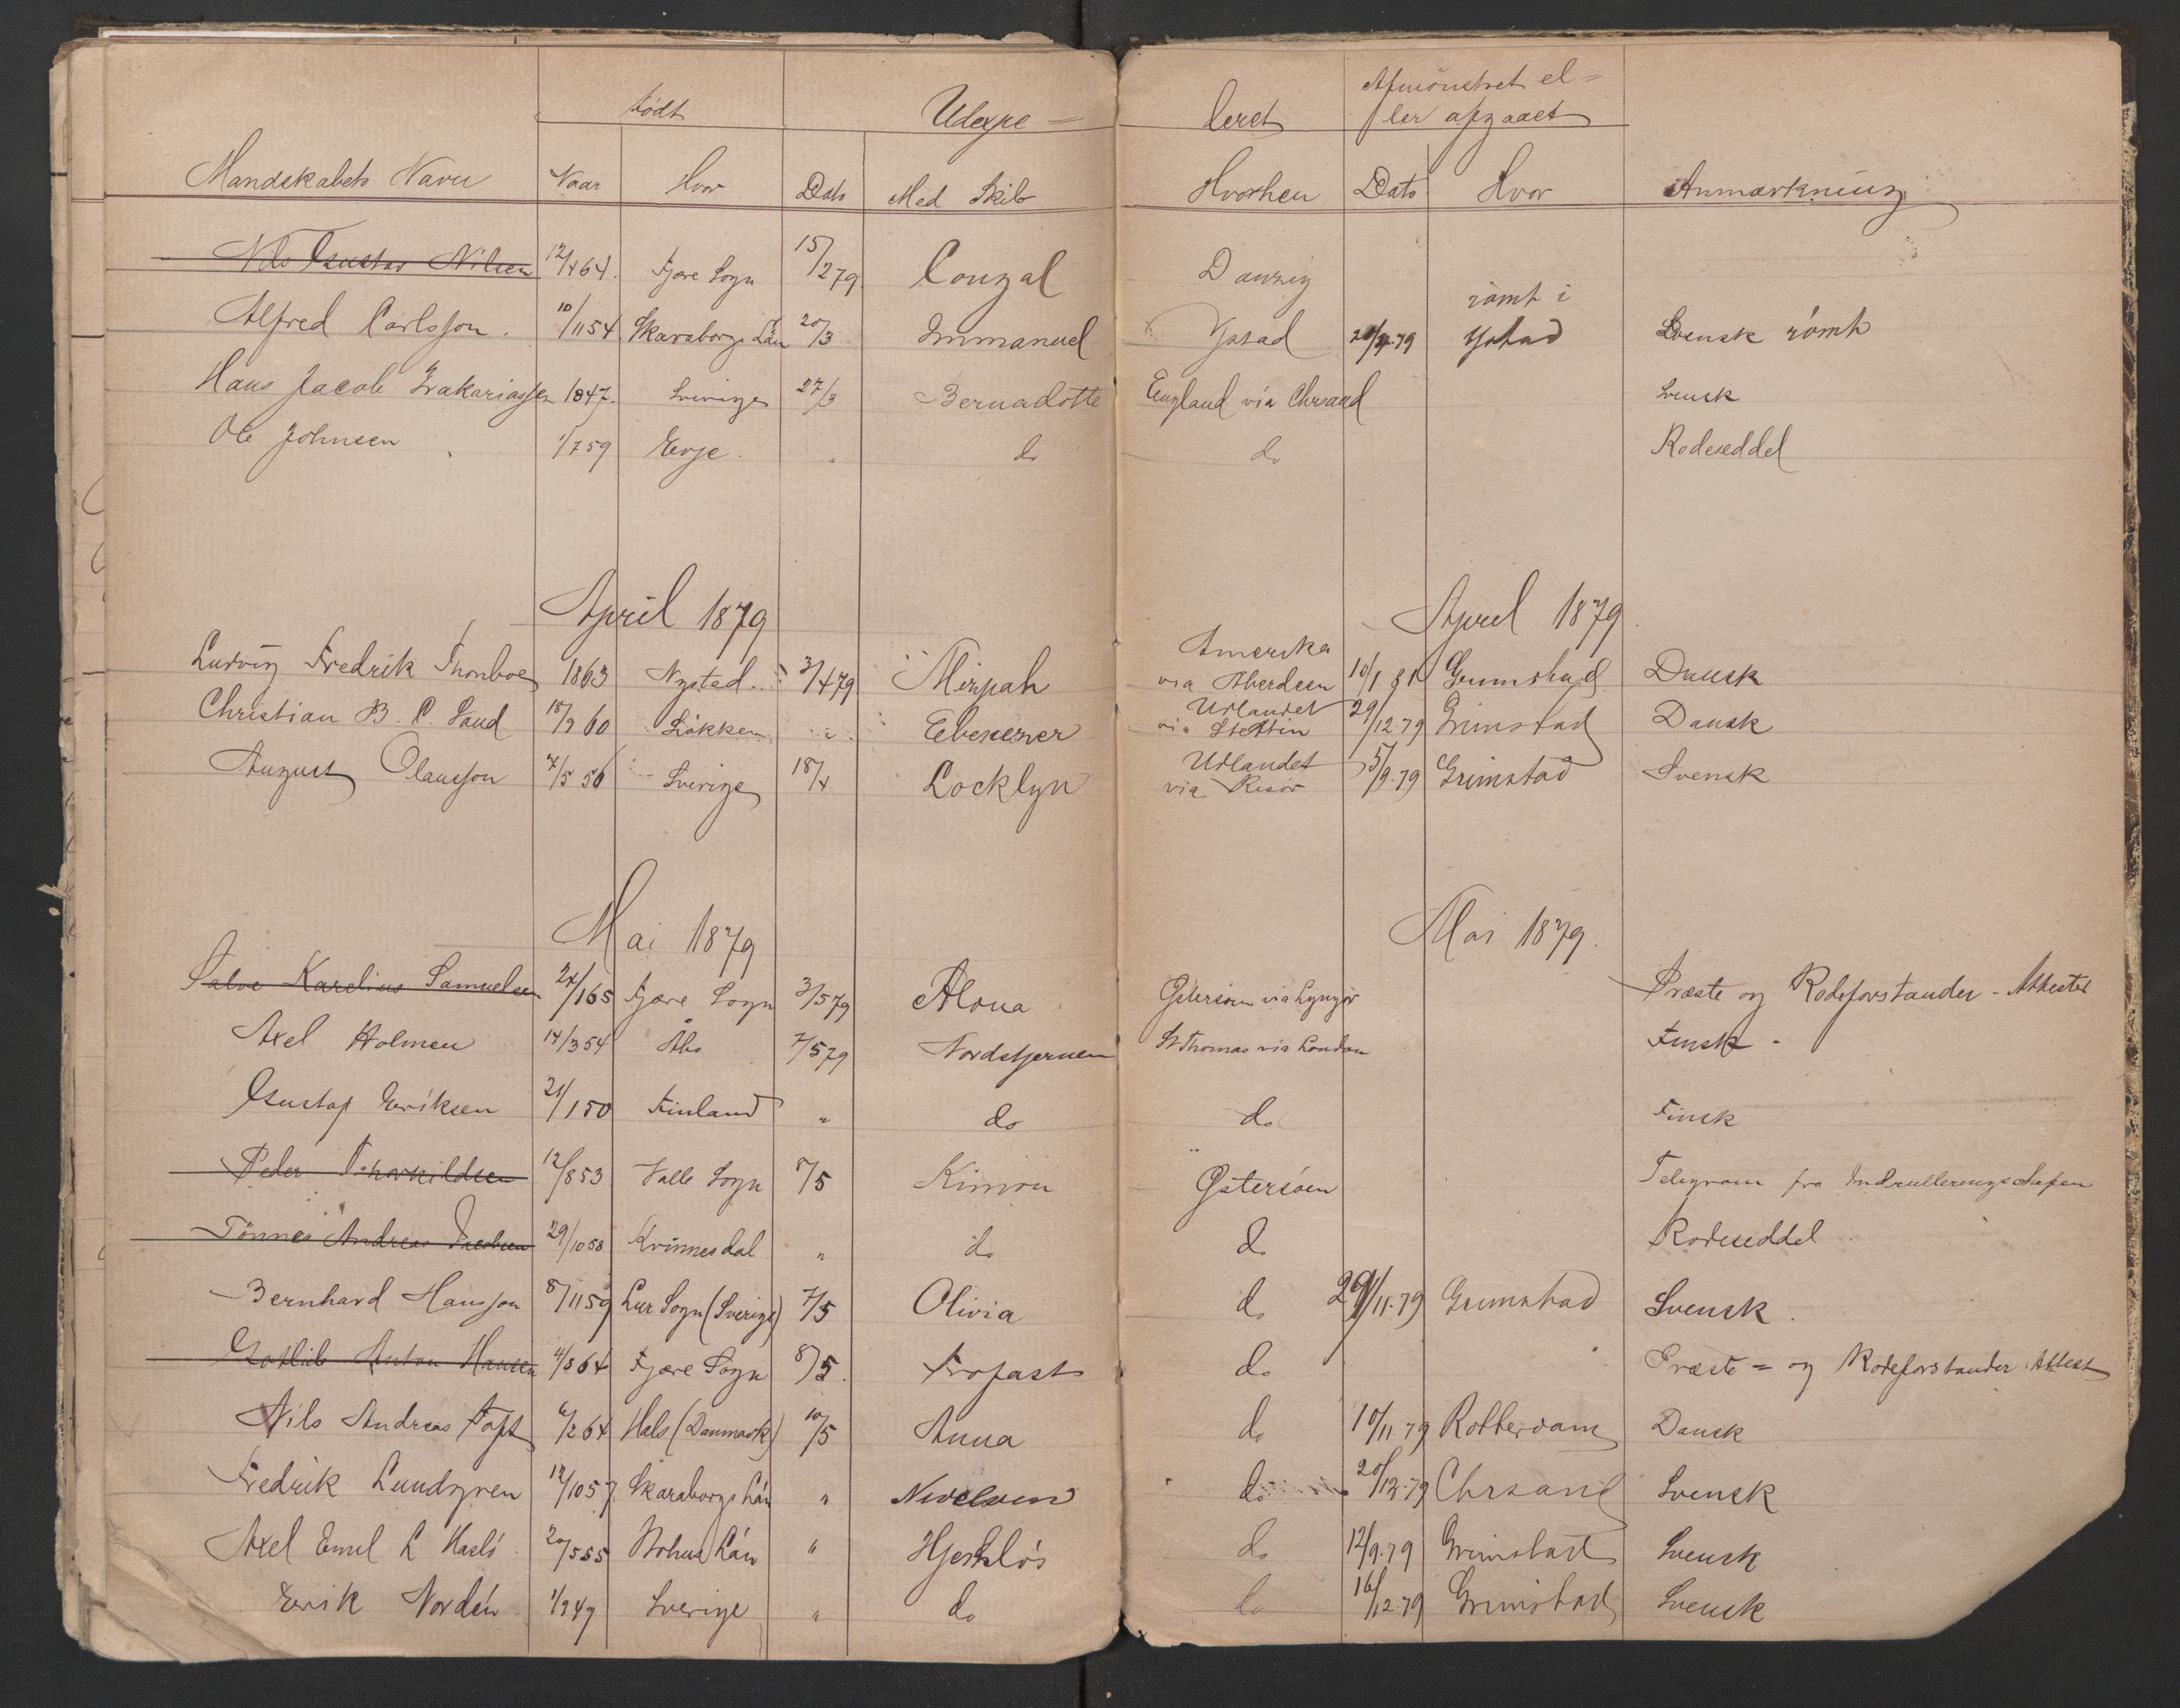 Født Udexpe= deret Afmönstret el=
ler afgaaet
Mandskabets Navn Naar Hvor Dato Med Skib Hvorhen Dato Hvor Anmærkning
Nils Gustav Nilsen 12/4 64. Fjære Sogn 15/2 79 Conzal Danzig
Alfred Carlsson. 10/11 54 Skaraborgs Län 20/3 Immanuel Ystad 20/4 79 römt i Ystad Svensk römt
Hans Jacob Zakariassen 1847. Sverige 27/3 Bernadotte England via Chrsand Svensk
Ole Johnsen 1/7 59 Evje. " do do Rodeseddel
April 1879 April 1879
Ludvig Fredrik Thonboe 1863 Nysted 3/4 79 Mizpah Amerika via Aberdeen 10/1 81 Grimstad Dansk
Christian B. C. Saud 18/9 60 Lökken " Ebenezer Udlandet via Stettin 29/12 79 Grimstad Dansk
August Olausson 7/5 56 Sverige 18/4 Locklyn Udlandet via Risör 5/9 79 Grimstad Svensk
Mai 1879 Mai 1879.
Salve Karelius Samuelsen 24/1 65 Fjære Sogn 3/5 79 Alona Östersöen via Lyngör Præste og Rodeforstander-Attester
Axel Holmen 14/3 54 Åbo 7/5 79 Nordstjernen St Thomas via London Finsk
Gustaf Eriksen 21/1 50 Finland " do do Finsk
Peder Thorkildsen 12/8 53 Valle Sogn 8/5 Kimon Östersöen Telegram fra Indrulleringschefen
Tönnes Andreas Jacobsen 29/10 58 Kvinnesdal " do do Rodeseddel
Bernhard Hansson 8/11 59 Lur Sogn (Sverige) 7/5 Olivia do 29/11 79 Grimstad Svensk.
Gotlib Anton Hansen 4/5 64 Fjære Sogn 8/5. Trofast do Præste= og Rodeforstander Attest
Nils Andreas Toft 6/2 64 Hals (Danmark) 10/5 Anna do 10/11 79 Rotterdam Dansk
Fredrik Lundgren 12/10 57 Skaraborgs Län " do 20/12 79 Chrsand Svensk
Axel Emil L Hasló 20/5 55 Bohus Län " Hjemlös do 12/9 79 Grimstad Svensk
Erik Nordén 1/9 49 Sverige " do do 16/12 79 Grimstad Svensk